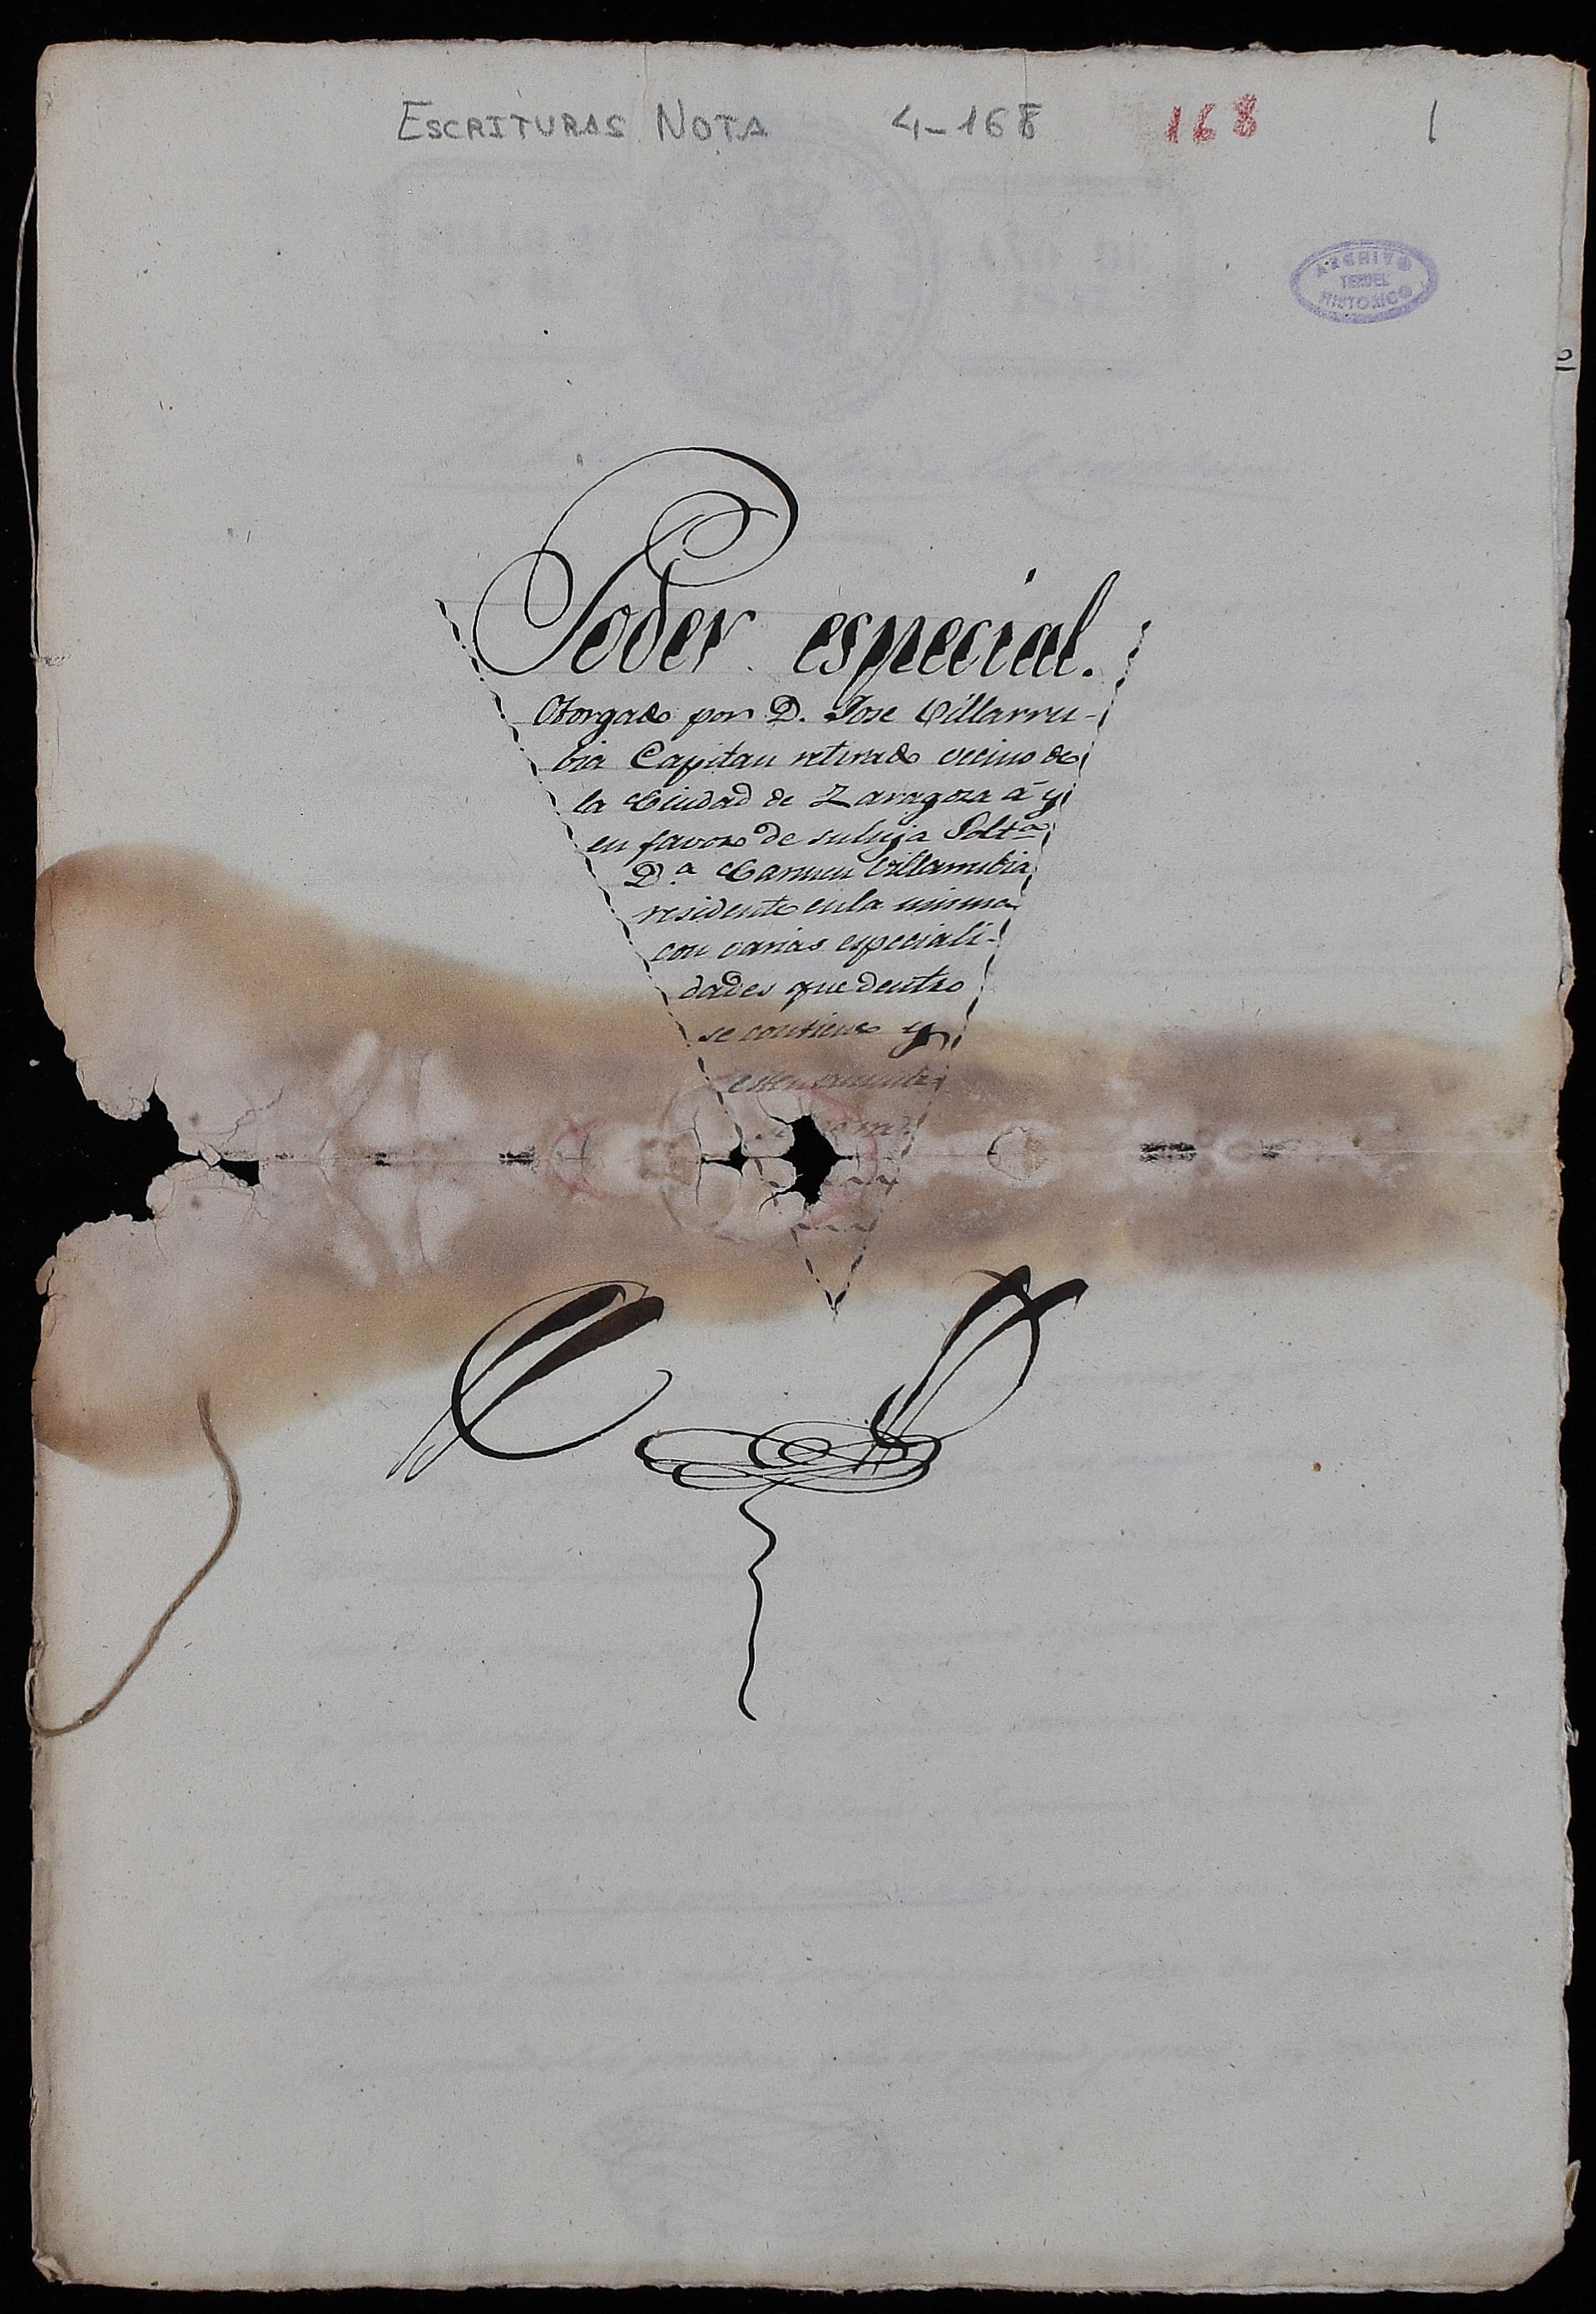 ESCRITURAS NOTA 4-168 168 1
ARCHIVO
TERUEL
HISTORICO
Poder especial.
Otorgado por D. Jose Villarru-
bia Capitan retirado vecino de
la Ciudad de Zaragoza á y
en favor de su hija Solt.ª
D.ª Carmen Villarrubia
residente en la misma
con varias especiali-
dades que dentro
se contiene y